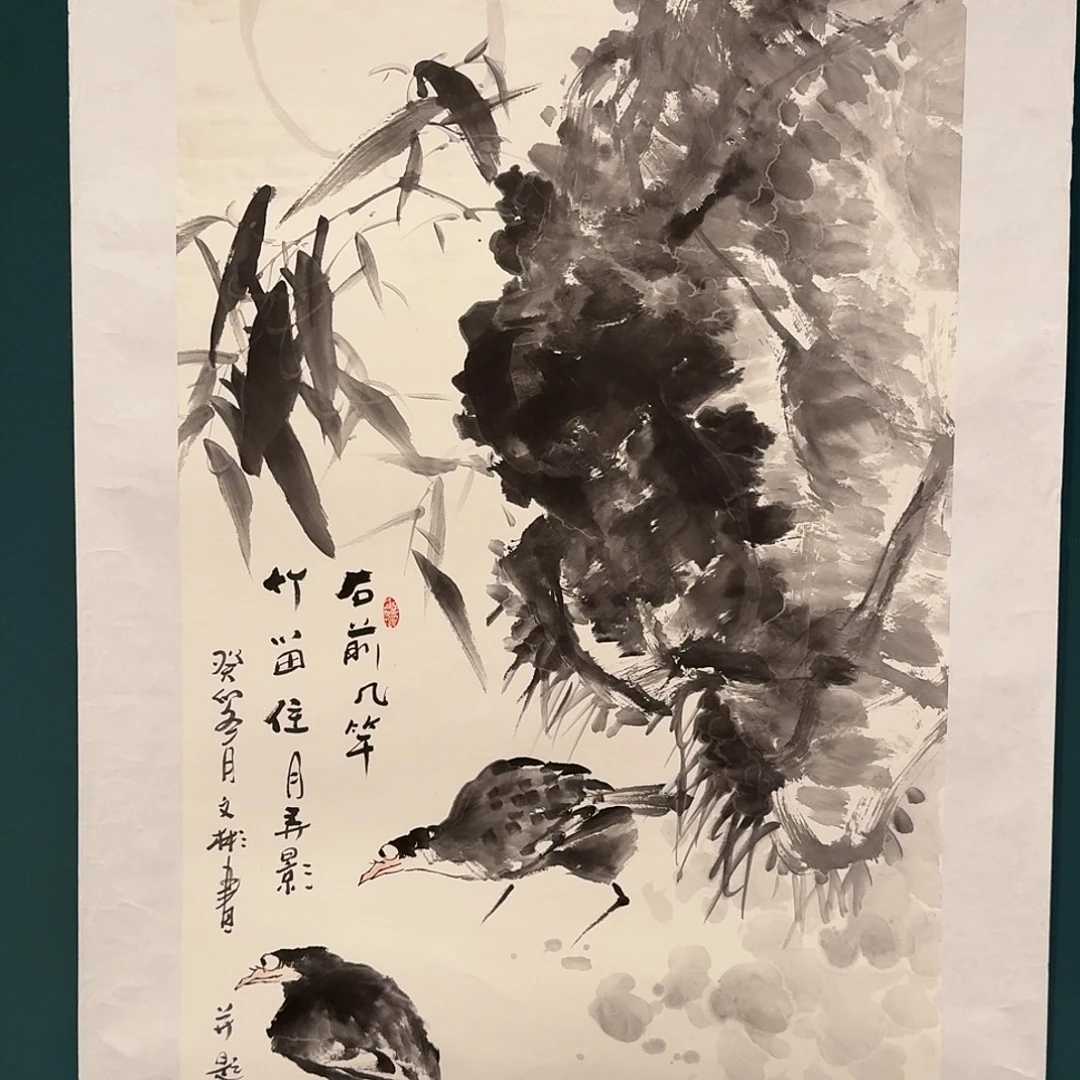 石前几竿
竹留住月弄影
癸卯冬月文彬画
并题